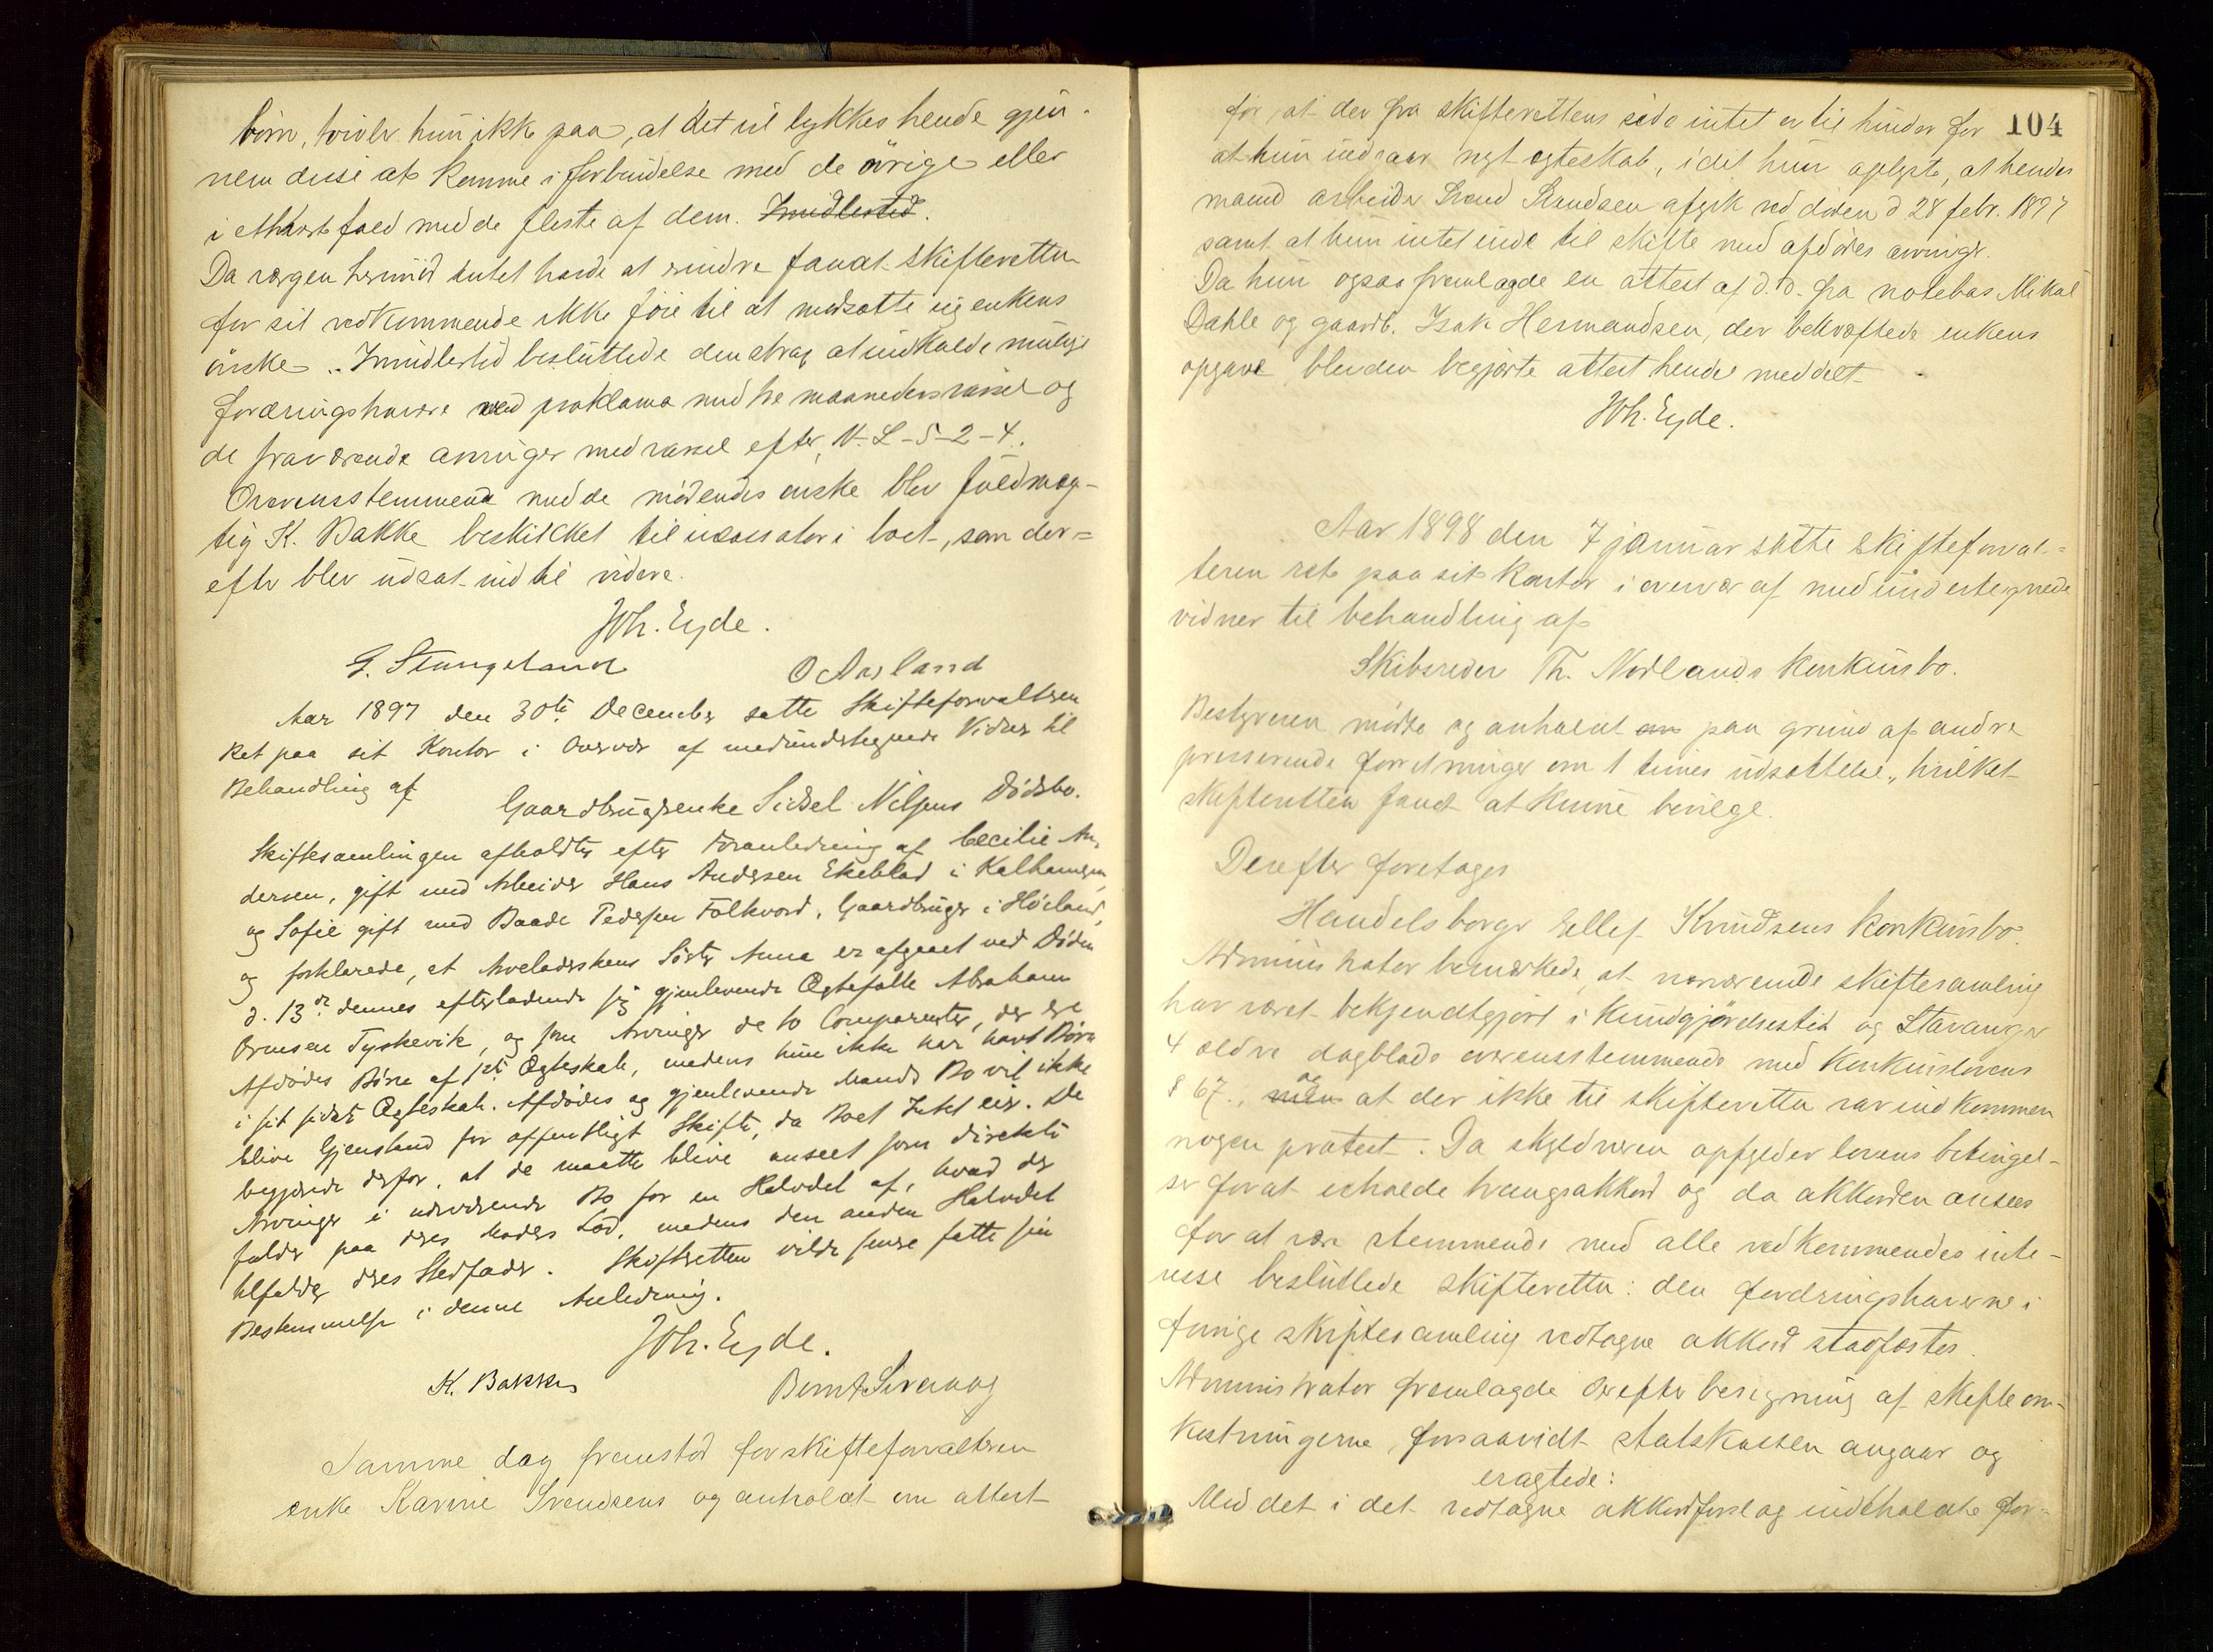 börn, tvivler hun ikke paa, at det vil lykkes hende gjen-
nem disse at komme i forbindelse med de øvrige eller
i ethvert fald med de fleste af dem. Imidlertid.
Da værgen hermed intet havde at erindre fandt skifteretten
for sit vedkommende ikke föie til at modsætte sig enkens
önske. Imidlertid besluttede den strax at indkalde mulige
fordringshavere ved proklama med tre maaneders varsel og
de fraværende arvinger med varsel efter N-L-5-2-4.
Overensstemmende med de mödendes önske blev fuldmæg-
tig K. Bakke beskikket til incassator i boet, som der-
efter blev udsat indtil videre.
Joh. Eyde.
G. Stangeland O Aasland
Aar 1897 den 30te December satte Skifteforvalteren
Ret paa sit Kontor i Overvær af medundertegnede Vidner til
Behandling af
Gaardbrugerenke Sidsel Nilsens Dödsbo.
Skiftesamlingen afholdtes efter Foranledning af Cecilie An-
dersen, gift med Arbeider Hans Andersen Ekeblad i Kalhammeren,
og Sofie gift med Baade Pedersen Folkvord, Gaardbruger i Höiland,
og forklarede, at Arveladerskens Söster Anna er afgaaet ved Döden
d. 13de dennes efterladende sig gjenlevende Ægtefælle Abraham
Ornsen Tyskevik, og som Arvinger de to Comparenter, der ere
Afdödes Börn af 1ste Ægteskab, medens hun ikke har havt Börn
i sit sidste Ægteskab. Afdödes og gjenlevende Mands Bo vil ikke
blive Gjenstand for offentligt Skifte, da Boet Intet eier. De
begjærede derfor, at de maatte blive anseet som direkte
Arvinger i nærværende Bo for en Halvdel af, hvad der
falder paa deres Moders Lod, medens den anden Halvdel
tilfalder deres Stedfader. Skifteretten vilde senere fatte sin
Bestemmelse i denne Anledning.
Joh. Eyde.
K. Bakke Bernt Sivertsen
Samme dag fremstod for skifteforvalteren
enke Karine Svendsens og anholdt om attest
104
for, at der fra skifterettens side intet er til hinder for
at hun indgaar nyt ægteskab, idet hun oplyste, at hendes
mand arbeider Svend Svendsen afgik ved döden d 28 febr. 1897
samt at hun intet eiede til skifte med afdödes arvinger.
Da hun ogsaa fremlagde en attest af d.d. fra notebas Mikal
Dahle og gaardb. Isak Hermandsen, der bekræftede enkens
opgave blev den begjærte attest hende meddelt
Joh. Eyde.
Aar 1898 den 7 januar satte skifteforval-
teren ret paa sit kontor i overvær af medundertegnede
vidner til behandling af
Skibsreder Th. Nordlands konkursbo.
Bestyreren mödte og anholdt om paa grund af andre
presserende forretninger om 1 times udsættelse, hvilket
skifteretten fandt at kunne bevilge.
Derefter foretoges
Handelsborger Ellef Knudsens konkursbo.
Administrator bemærkede, at nærværende skiftesamling
har været bekjendtgjort i Kundgjörelsestid. og Stavanger
4 ældre dagblade overensstemmende med konkurslovens
§ 67., men og at der ikke til skifteretten var indkommen
nogen protest. Da skyldneren opfylder lovens betingel-
ser for at erholde tvangsakkord og da akkorden ansees
for at være stemmende med alle vedkommendes inte-
resse besluttede skifteretten: den fordringshaverne i
forrige skiftesamling vedtagne akkord stadfæstes.
Administrator fremlagde derefter beregning af skifteom-
kostningerne forsaavidt statskassen angaar og
eragtede:
Med det i det vedtagne akkordforslag indeholdte for-